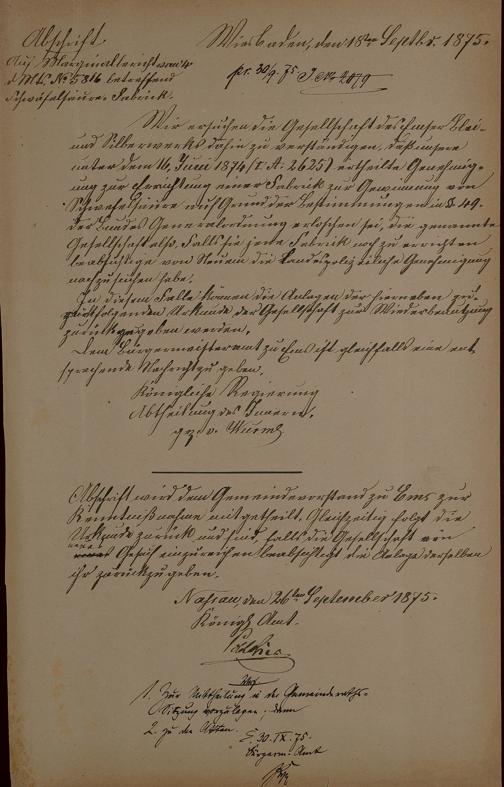 Abschrift.
Wiesbaden, den 18ten Septbr. 1875.
Auf Marginalbericht vom 4.
d. Mts. No 5816 betreffend
Schwefelsäure-Fabrik.
pr. 30/9. 75 J.No 4079
Wir ersuchen die Gesellschaft des Emser Blei-
und Silberwerks dahin zu verständigen, daß unsere
unter dem 16. Juni 1874 (I A. 2625) ertheilte Genehmig-
ung zur Errichtung einer Fabrik zur Gewinnung von
Schwefelsäure auf Grund der Bestimmungen in § 49.
der Bundes Gewerbeordnung erloschen sei, die genannte
Gesellschaft also, falls sie jene Fabrik noch zu errichten
beabsichtige von Neuem die Landespolizeiliche Genehmigung
nachzusuchen habe.
In diesem Falle können die Anlagen der hierneben
zurückfolgenden Urkunde der Gesellschaft zur Wiederbenutzung
zurückgegeben werden.
Dem Bürgermeisteramt zu Ems ist gleichfalls eine ent
sprechende Nachricht zu geben.
Königliche Regierung
Abtheilung des Innern.
gez. v. Wurmb
Abschrift wird dem Gemeindevorstand zu Ems zur
Kenntnißnahme mitgetheilt. Gleichzeitig folgt die
Urkunde zurück und sind, falls die Gesellschaft ein
neues Gesuch einzureichen beabsichtigt die Anlage derselben
ihr zurückzugeben.
Nassau, den 26ten September 1875.
Königl. Amt.
1. Zur Mittheilung in der Gemeinderaths-
Sitzung vorzulegen, dann
2. zu den Akten.
E. 30. IX. 75.
Bürgerm. Amt